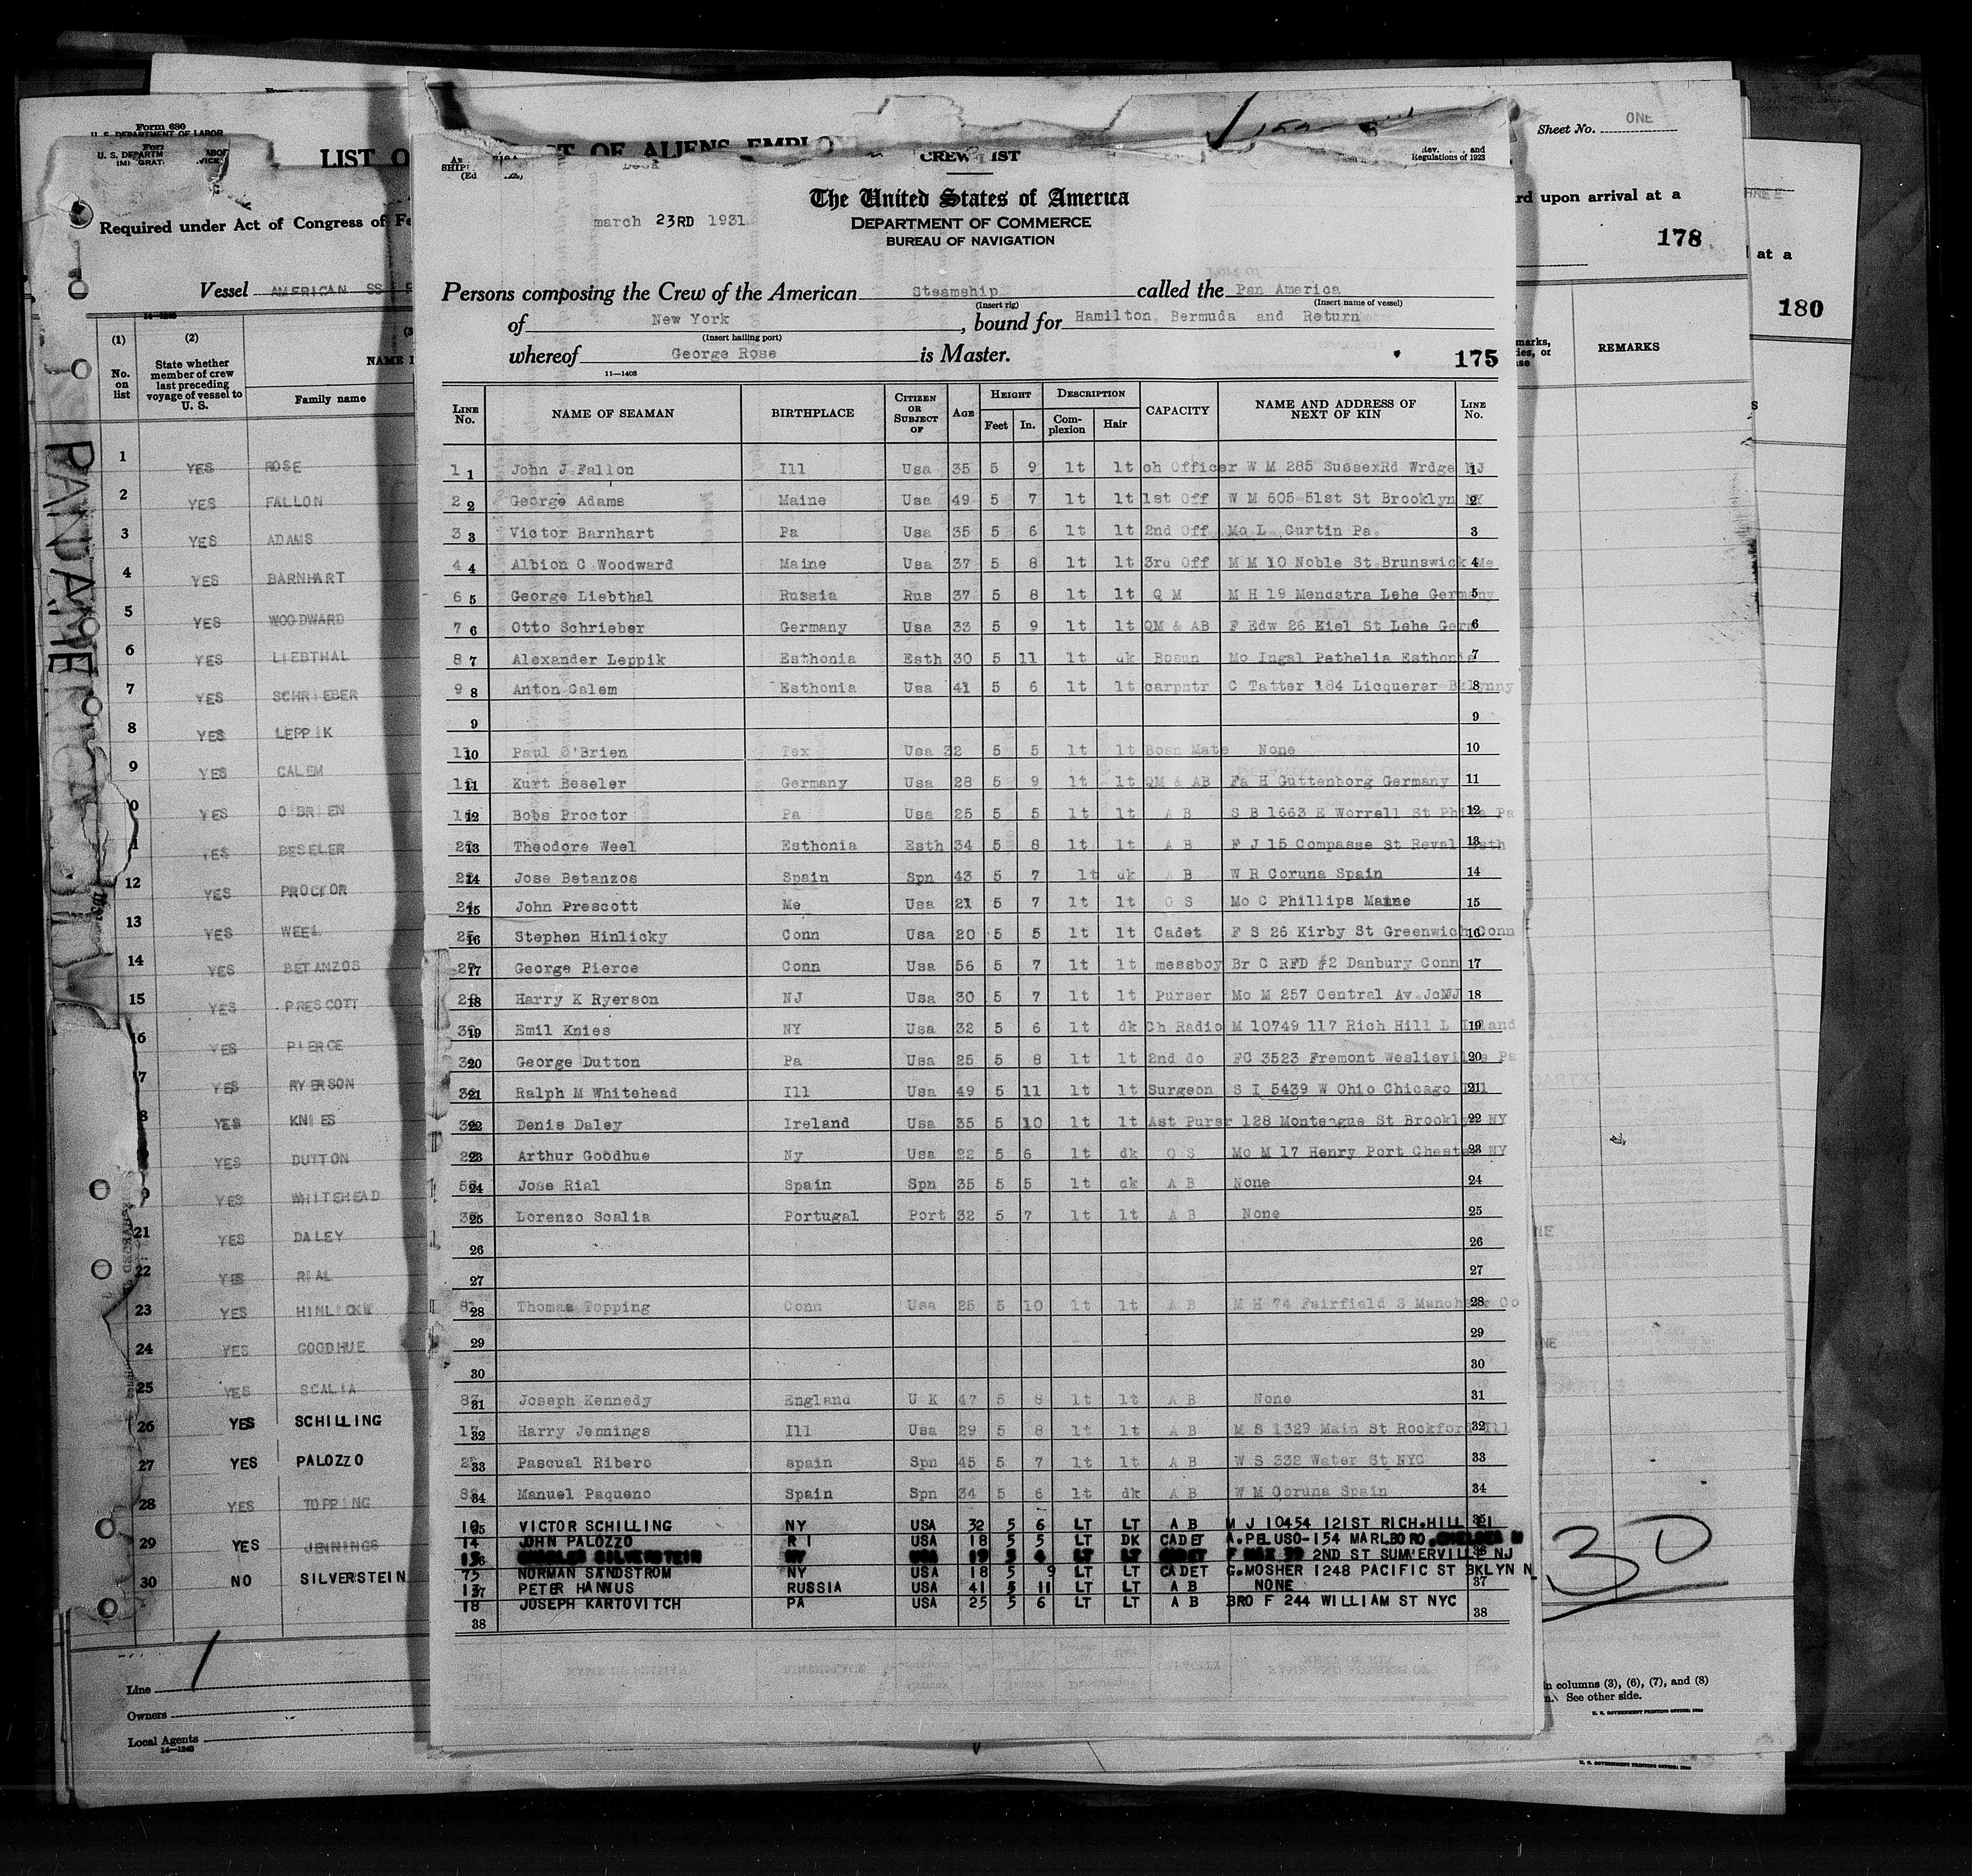 Form 680
U. S. DEPARTMENT OF LABOR
LIST O
Required under Act of Congress of Fe
Vessel AMERICAN SS
(1) (2)
No. on list
State whether member of crew last preceding voyage of vessel to U. S.
NAME
Family name
1 YES ROSE
2 YES FALLON
3 YES ADAMS
4 YES BARNHART
5 YES WOODWARD
6 YES LIEBTHAL
7 YES SCHRIEBER
8 YES LEPPIK
9 YES CALEM
0 YES O'BRIEN
1 YES BESELER
12 YES PROCTOR
13 YES WEEL
14 YES BETANZOS
15 YES PRESCOTT
16 YES PIERCE
7 YES RYERSON
8 YES KNIES
YES DUTTON
YES WHITEHEAD
21 YES DALEY
22 YES RIAL
23 YES HINLICKY
24 YES GOODHUE
25 YES SCALIA
26 YES SCHILLING
27 YES PALOZZO
28 YES TOPPING
29 YES JENNINGS
30 NO SILVERSTEIN
Line
Owners
Local Agents
14—1240
OF ALIENS EMPLO
CREW LIST
Regulations of 1923
march 23RD 1931
The United States of America
DEPARTMENT OF COMMERCE
BUREAU OF NAVIGATION
Persons composing the Crew of the American Steamship called the Pan America
(Insert rig) (Insert name of vessel)
of New York, bound for Hamilton, Bermuda and Return
(Insert hailing port)
whereof George Rose is Master.
11—1408
175
LINE No. NAME OF SEAMAN BIRTHPLACE CITIZEN OR SUBJECT OF AGE HEIGHT Feet In. DESCRIPTION Complexion Hair CAPACITY NAME AND ADDRESS OF NEXT OF KIN LINE No.
1 1 John J Fallon Ill Usa 35 5 9 lt lt ch Officer W M 285 SussexRd Wrdge NJ 1
2 2 George Adams Maine Usa 49 5 7 lt lt 1st Off W M 605-51st St Brooklyn NY 2
3 3 Victor Barnhart Pa Usa 35 5 6 lt lt 2nd Off Mo L. Curtin Pa. 3
4 4 Albion C Woodward Maine Usa 37 5 8 lt lt 3rd Off M M 10 Noble St.Brunswick Me 4
6 5 George Liebthal Russia Rus 37 5 8 lt lt Q M M H 19 Mendstra Lehe Germany 5
7 6 Otto Schrieber Germany Usa 33 5 9 lt lt QM & AB F Edw 26 Kiel St Lehe Germ 6
8 7 Alexander Leppik Esthonia Esth 30 5 11 lt dk Bosun Mo Ingal Pathelia Esthonia 7
9 8 Anton Calem Esthonia Usa 41 5 6 lt lt carpntr C Tatter 184 Licquerer Bklynny 8
9 9
10 Paul O'Brien Tex Usa 32 5 5 lt lt Bosn Mate None 10
11 Kurt Beseler Germany Usa 28 5 9 lt lt QM & AB Fa H Guttenborg Germany 11
12 Bobs Proctor Pa Usa 25 5 5 lt lt A B S B 1663 E Worrell St Phila Pa 12
13 Theodore Weel Esthonia Esth 34 5 8 lt lt A B F J 15 Compasse St Reval Esth 13
14 Jose Betanzos Spain Spn 43 5 7 lt dk A B W R Coruna Spain 14
15 John Prescott Me Usa 21 5 7 lt lt O S Mo C Phillips Maine 15
16 Stephen Hinlicky Conn Usa 20 5 5 lt lt Cadet F S 26 Kirby St Greenwich Conn 16
17 George Pierce Conn Usa 56 5 7 lt lt messboy Br C RFD #2 Danbury Conn 17
18 Harry K Ryerson NJ Usa 30 5 7 lt lt Purser Mo M 257 Central Av.JcNJ 18
19 Emil Knies NY Usa 32 5 6 lt dk Ch Radio M 10749 117 Rich Hill L Island 19
20 George Dutton Pa Usa 25 5 8 lt lt 2nd do FG 3523 Fremont Weslieville Pa 20
21 Ralph M Whitehead Ill Usa 49 5 11 lt lt Surgeon S I 5439 W Ohio Chicago Ill 21
22 Denis Daley Ireland Usa 35 5 10 lt lt Ast Pursr 128 Monteague St Brooklyn NY 22
23 Arthur Goodhue Ny Usa 22 5 6 lt dk O S Mo M 17 Henry Port Chester NY 23
24 Jose Rial Spain Spn 35 5 5 lt dk A B None 24
25 Lorenzo Scalia Portugal Port 32 5 7 lt lt A B None 25
26 26
27 27
28 Thomas Topping Conn Usa 25 5 10 lt lt A B M H 74 Fairfield S Manchser Co 28
29 29
30 30
31 Joseph Kennedy England U K 47 5 8 lt lt A B None 31
32 Harry Jennings Ill Usa 29 5 8 lt lt A B M S 1329 Main St Rockford Ill 32
33 Pascual Ribero spain Spn 45 5 7 lt lt A B W S 332 Water St NYC 33
34 Manuel Paqueno Spain Spn 34 5 6 lt dk A B W M Coruna Spain 34
10 VICTOR SCHILLING NY USA 32 5 6 LT LT A B M J 10454 121ST RICH.HILL LI 35
14 JOHN PALOZZO R I USA 18 5 5 LT DK CADET A.PELUSO-154 MARLBORO.CHELSEA M
SILVERSTEIN 2ND ST SUMVERVILLE NJ
75 NORMAN SANDSTROM NY USA 18 5 9 LT LT CADET G.MOSHER 1248 PACIFIC ST BKLYN N
PETER HANNUS RUSSIA USA 41 5 11 LT LT A B NONE 37
18 JOSEPH KARTOVITCH PA USA 25 5 6 LT LT A B BRO F 244 WILLIAM ST NYC
38 38
Sheet No. ONE
rd upon arrival at a
178
REMARKS
at a
180
30
in columns (3), (6), (7), and (8)
See other side.
U. S. GOVERNMENT PRINTING OFFICE